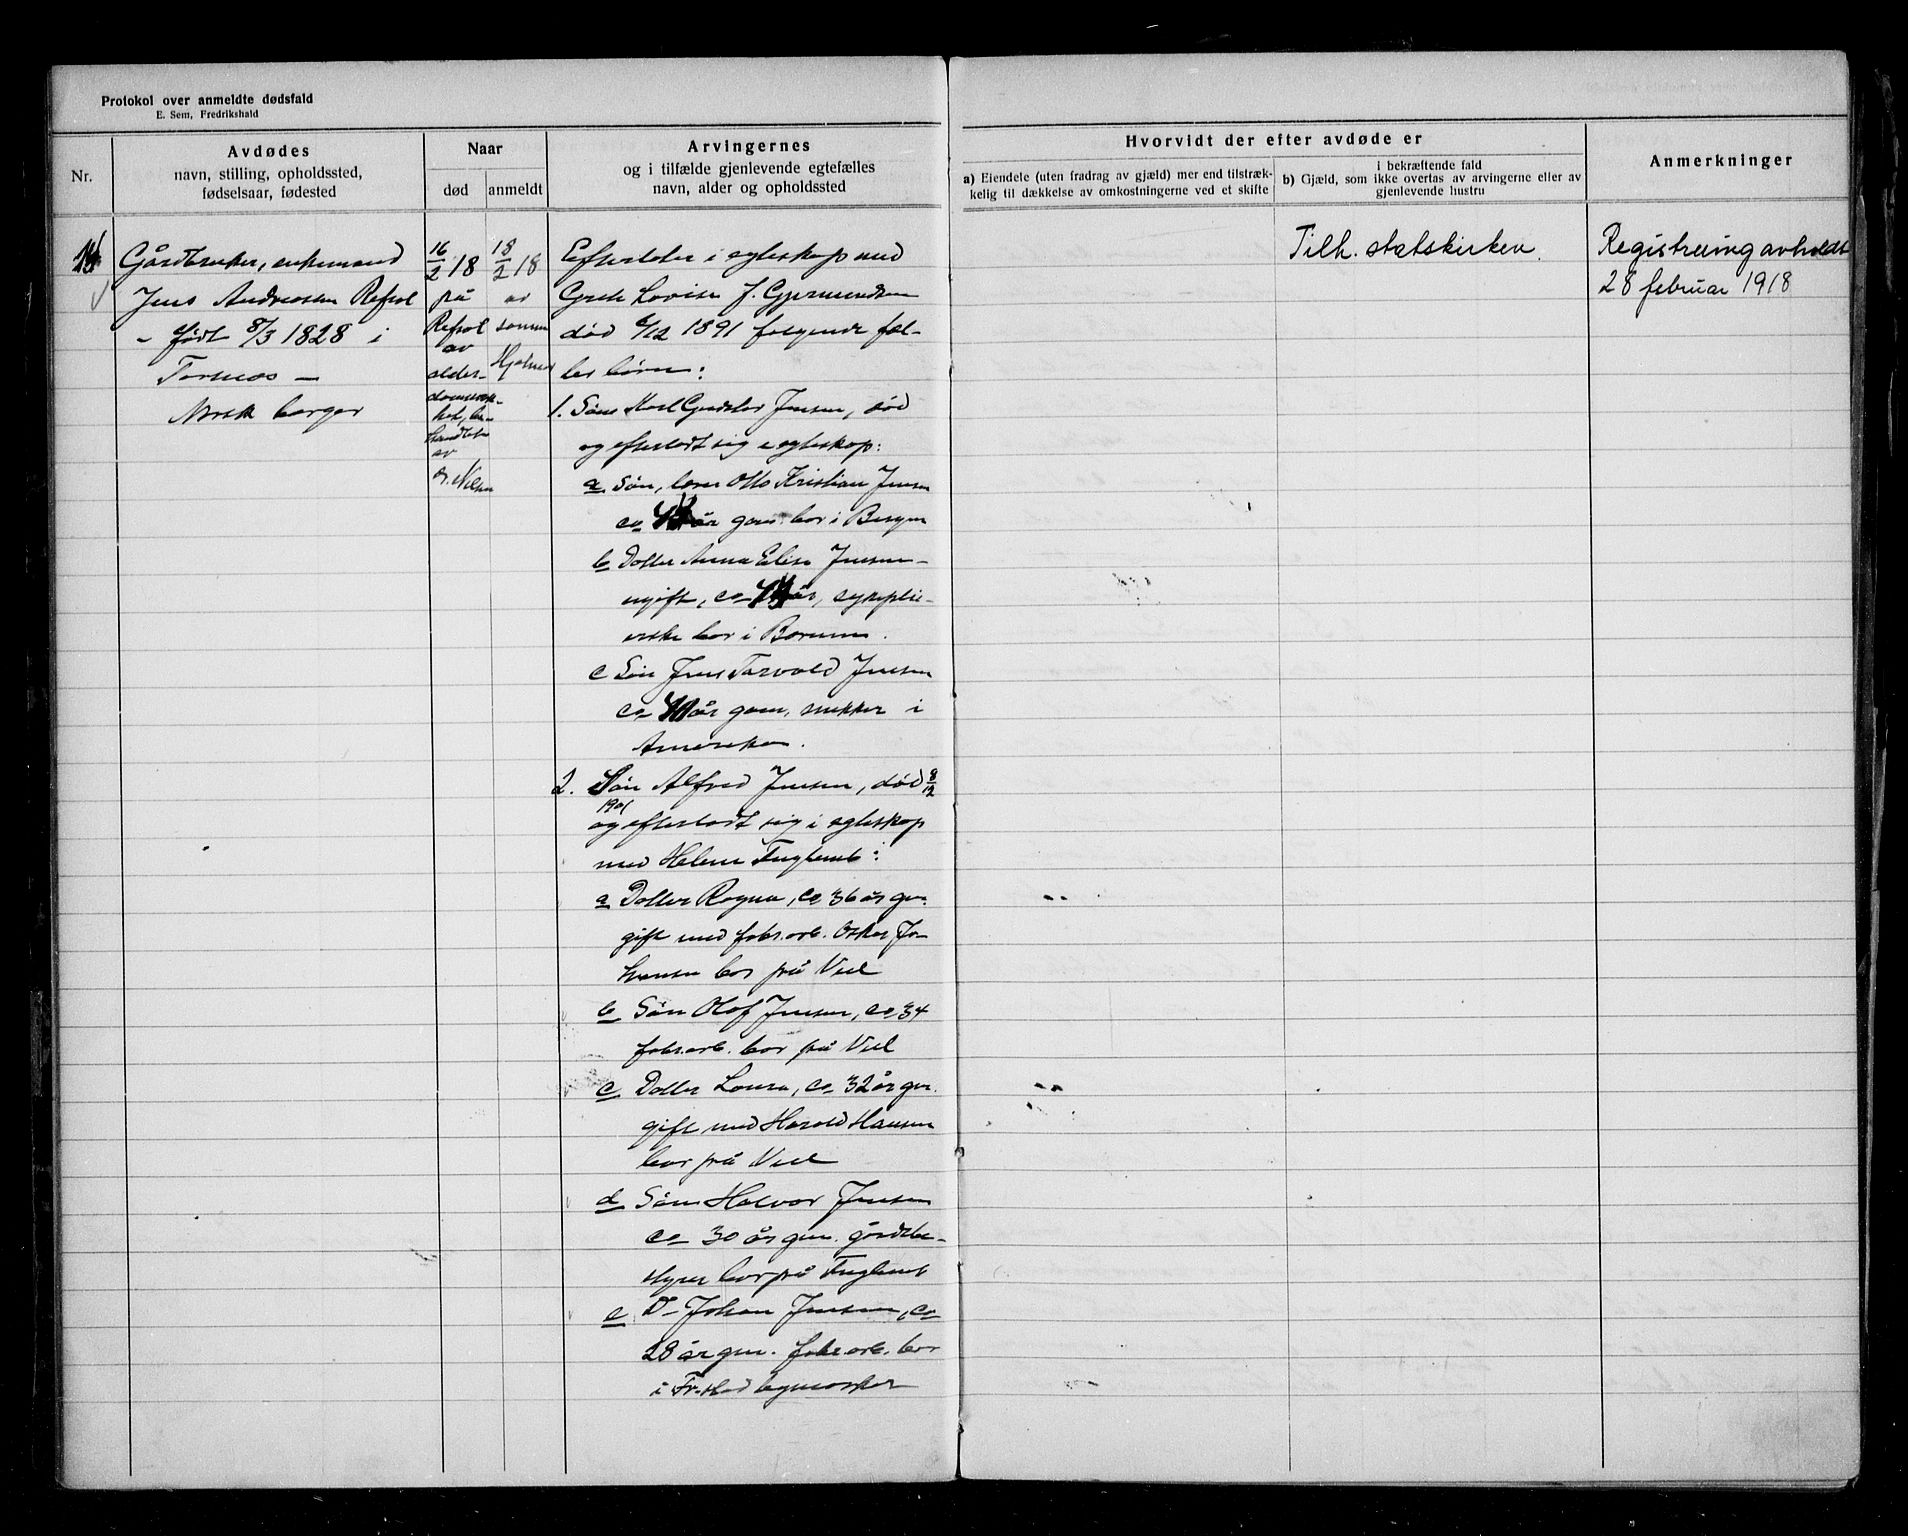 Protokol over anmeldte dødsfald
E. Sem, Fredrikshald
Nr.
Avdødes
navn, stilling, opholdssted,
fødselsaar, fødested
Naar
død
anmeldt
Arvingernes
og i tilfælde gjenlevende egtefælles
navn, alder og opholdssted
Hvorvidt der efter avdøde er
a) Eiendele (uten fradrag av gjæld) mer end tilstræk-
kelig til dækkelse av omkostningerne ved et skifte
i bekræftende fald
b) Gjæld, som ikke overtas av arvingerne eller av
gjenlevende hustru
Anmerkninger
Gårdbruker, enkemand
Jens Andreassen Refsol
- født 8/3 1828 i
Torsnæs -
Norsk borger
16/2 18
på
Refsol
av
alder-
domssvæk-
ket, be-
handlet
av
dr. Nilsen
18/2 18
av
sønnen
Hjalmar
Efterlater i egteskap med
Grete Lovise f. Gjermundsen
død 6/12 1891 følgende fæl-
les børn:
1. Søn Karl Gustav Jensen, død
og efterlodt sig i egteskap:
a Søn, lærer Otto Kristian Jensen
ca år gam. bor i Bergen
b Datter Anna Elise Jensen
ugift, ca år, sykeplei-
erske bor i Bærum.
c Søn Jens Torvald Jensen
ca år gam. snekker i
Amerika.
2. Søn Alfred Jensen, død 8/12
1901
og efterlodt sig i egteskap
med Helene Fuglevik:
a Datter Ragna, ca 36 år gm.
gift med fabr.arb. Oskar Jo-
hansen bor på Viel
b Søn Olaf Jensen, ca 34
fabr.arb. bor på Viel
c Datter Laura, ca 32 år gm.
gift med Harald Hansen
bor på Viel
d Søn Halvor Jensen
ca 30 år gm. gårdbe-
styrer bor på Fuglevik
e D- Johan Jensen, ca
28 år gm. fabr.arb. bor
i Fr.stad bymarker
Tilh. statskirken.
Registrering avholdt
28 februar 1918